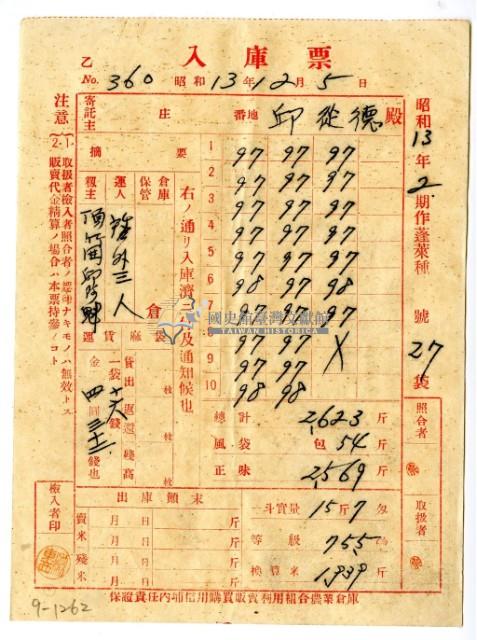 入庫票
乙
No. 360 昭和13年12月5日
寄託主 庄 番地 邱從德 殿
昭和13年2期作蓬萊種 號 27袋
摘要
1 97 97 97
2 97 97 97
3 97 97 97
4 97 97 97
5 97 97 97
6 98 97 98
7 97 97 97
97 97
9 97 97
10 98 98
總計 2,623 斤
風袋 包 54 斤
正味 2,569 斤
斗實量 15斤7匁
等級 755
換算米 1939
倉庫保管
運人 外三人
籾主
右ノ通リ入庫濟ニ及通知候也
倉
運賃
一袋十六錢
金四圓三十二錢也
麻袋
貸出 枚
返還 枚
殘高 枚
注意
1. 取扱者檢入者照合者ノ認印ナキモノハ無效トス
2. 販賣代金精算ノ場合ハ本票持參ノコト
照合者
取扱者
檢入者印
出庫顛末
賣米 月 日 斤
月 日 斤
殘米 月 日 斤
月 日 斤
保證責任內埔信用購買販賣利用組合農業倉庫
國史館臺灣文獻館
TAIWAN HISTORICA
9-1262